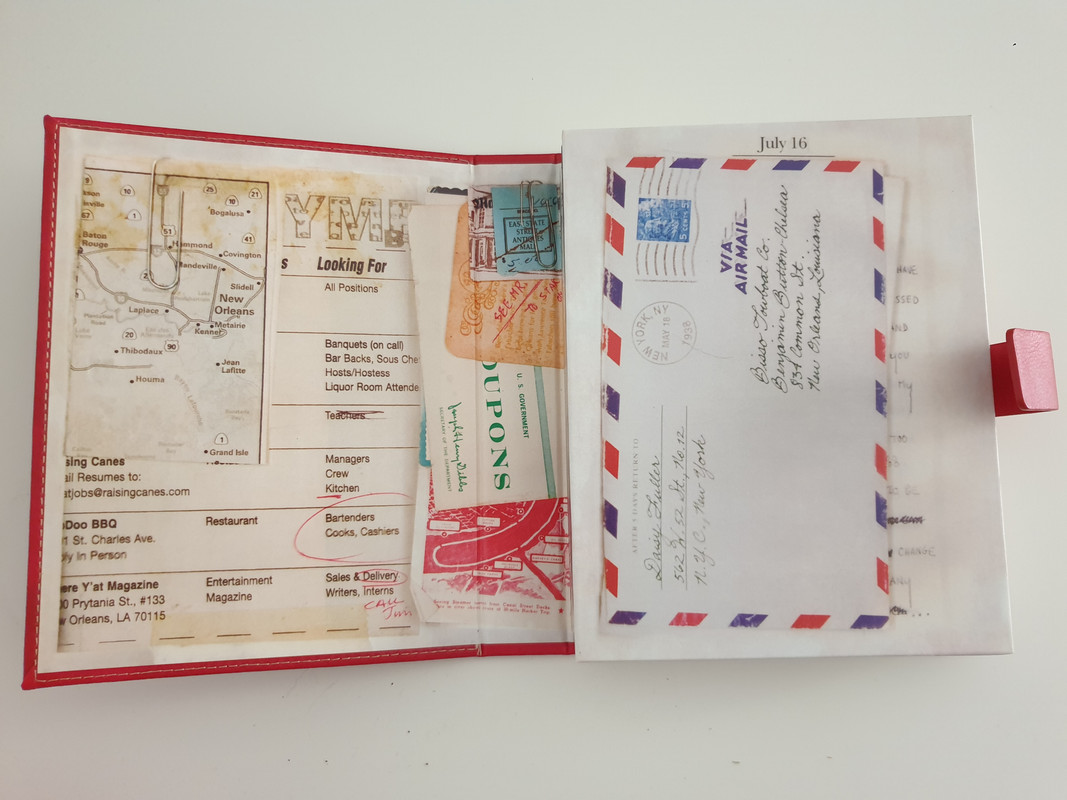 10
25
10
21
Bogalusa
1
51
41
Baton
Rouge
Hammond
Covington
Mandeville
Slidell
New
Orleans
Laplace
Metairie
Kenner
20
90
Thibodaux
Jean
Lafitte
Houma
1
Grand Isle
YME
s
Looking For
All Positions
Banquets (on call)
Bar Backs, Sous Che
Hosts/Hostess
Liquor Room Attende
Teachers
sing Canes
ail Resumes to:
atjobs@raisingcanes.com
Managers
Crew
Kitchen
oDoo BBQ
Restaurant
Bartenders
1 St. Charles Ave.
Cooks, Cashiers
ply In Person
ere Y'at Magazine
Entertainment
Sales & Delivery
00 Prytania St., #133
Magazine
Writers, Interns
w Orleans, LA 70115
CALL
EAST STATE
STREET
ANTIQUES
MALL
SEE MR.
TO
OUPONS
U. S. GOVERNMENT
SECRETARY OF THE DEPARTMENT
July 16
5 CENTS
VIA
AIRMAIL
NEW YORK, NY
MAY 18
1938
Bisso Towboat Co.
Benjamin Button-Chelsea
834 Common St.
New Orleans, Louisiana
AFTER 5 DAYS RETURN TO
Daisy Fuller
562 W. 52 St., No. 12
N.Y.C., New York
HAVE
SSED
YOU
MY
BE
CHANGE
ANY